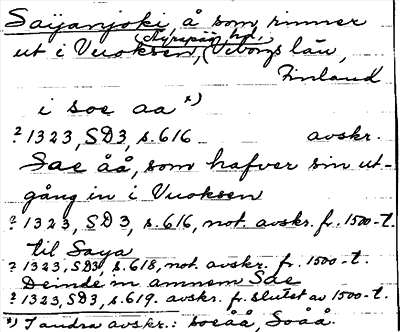 Saijanjoki, å som rinner
ut i Vuoksen, (Äyräpää hd, Viborgs län,
Finland
i soe aa *)
? 1323, SD3, s. 616 avskr.
Sae åå, som hafver sin ut-
gång in i Vuoksen
? 1323, SD 3, s. 616, not. avskr. fr. 1500-t.
til Saya
? 1323, SD3, s. 618, not. avskr. fr. 1500-t.
Deinde in amnem Sae
? 1323, SD3, s. 619. avskr. fr. slutet av 1500-t.
*) I andra avskr.: soeåå, Soåå.